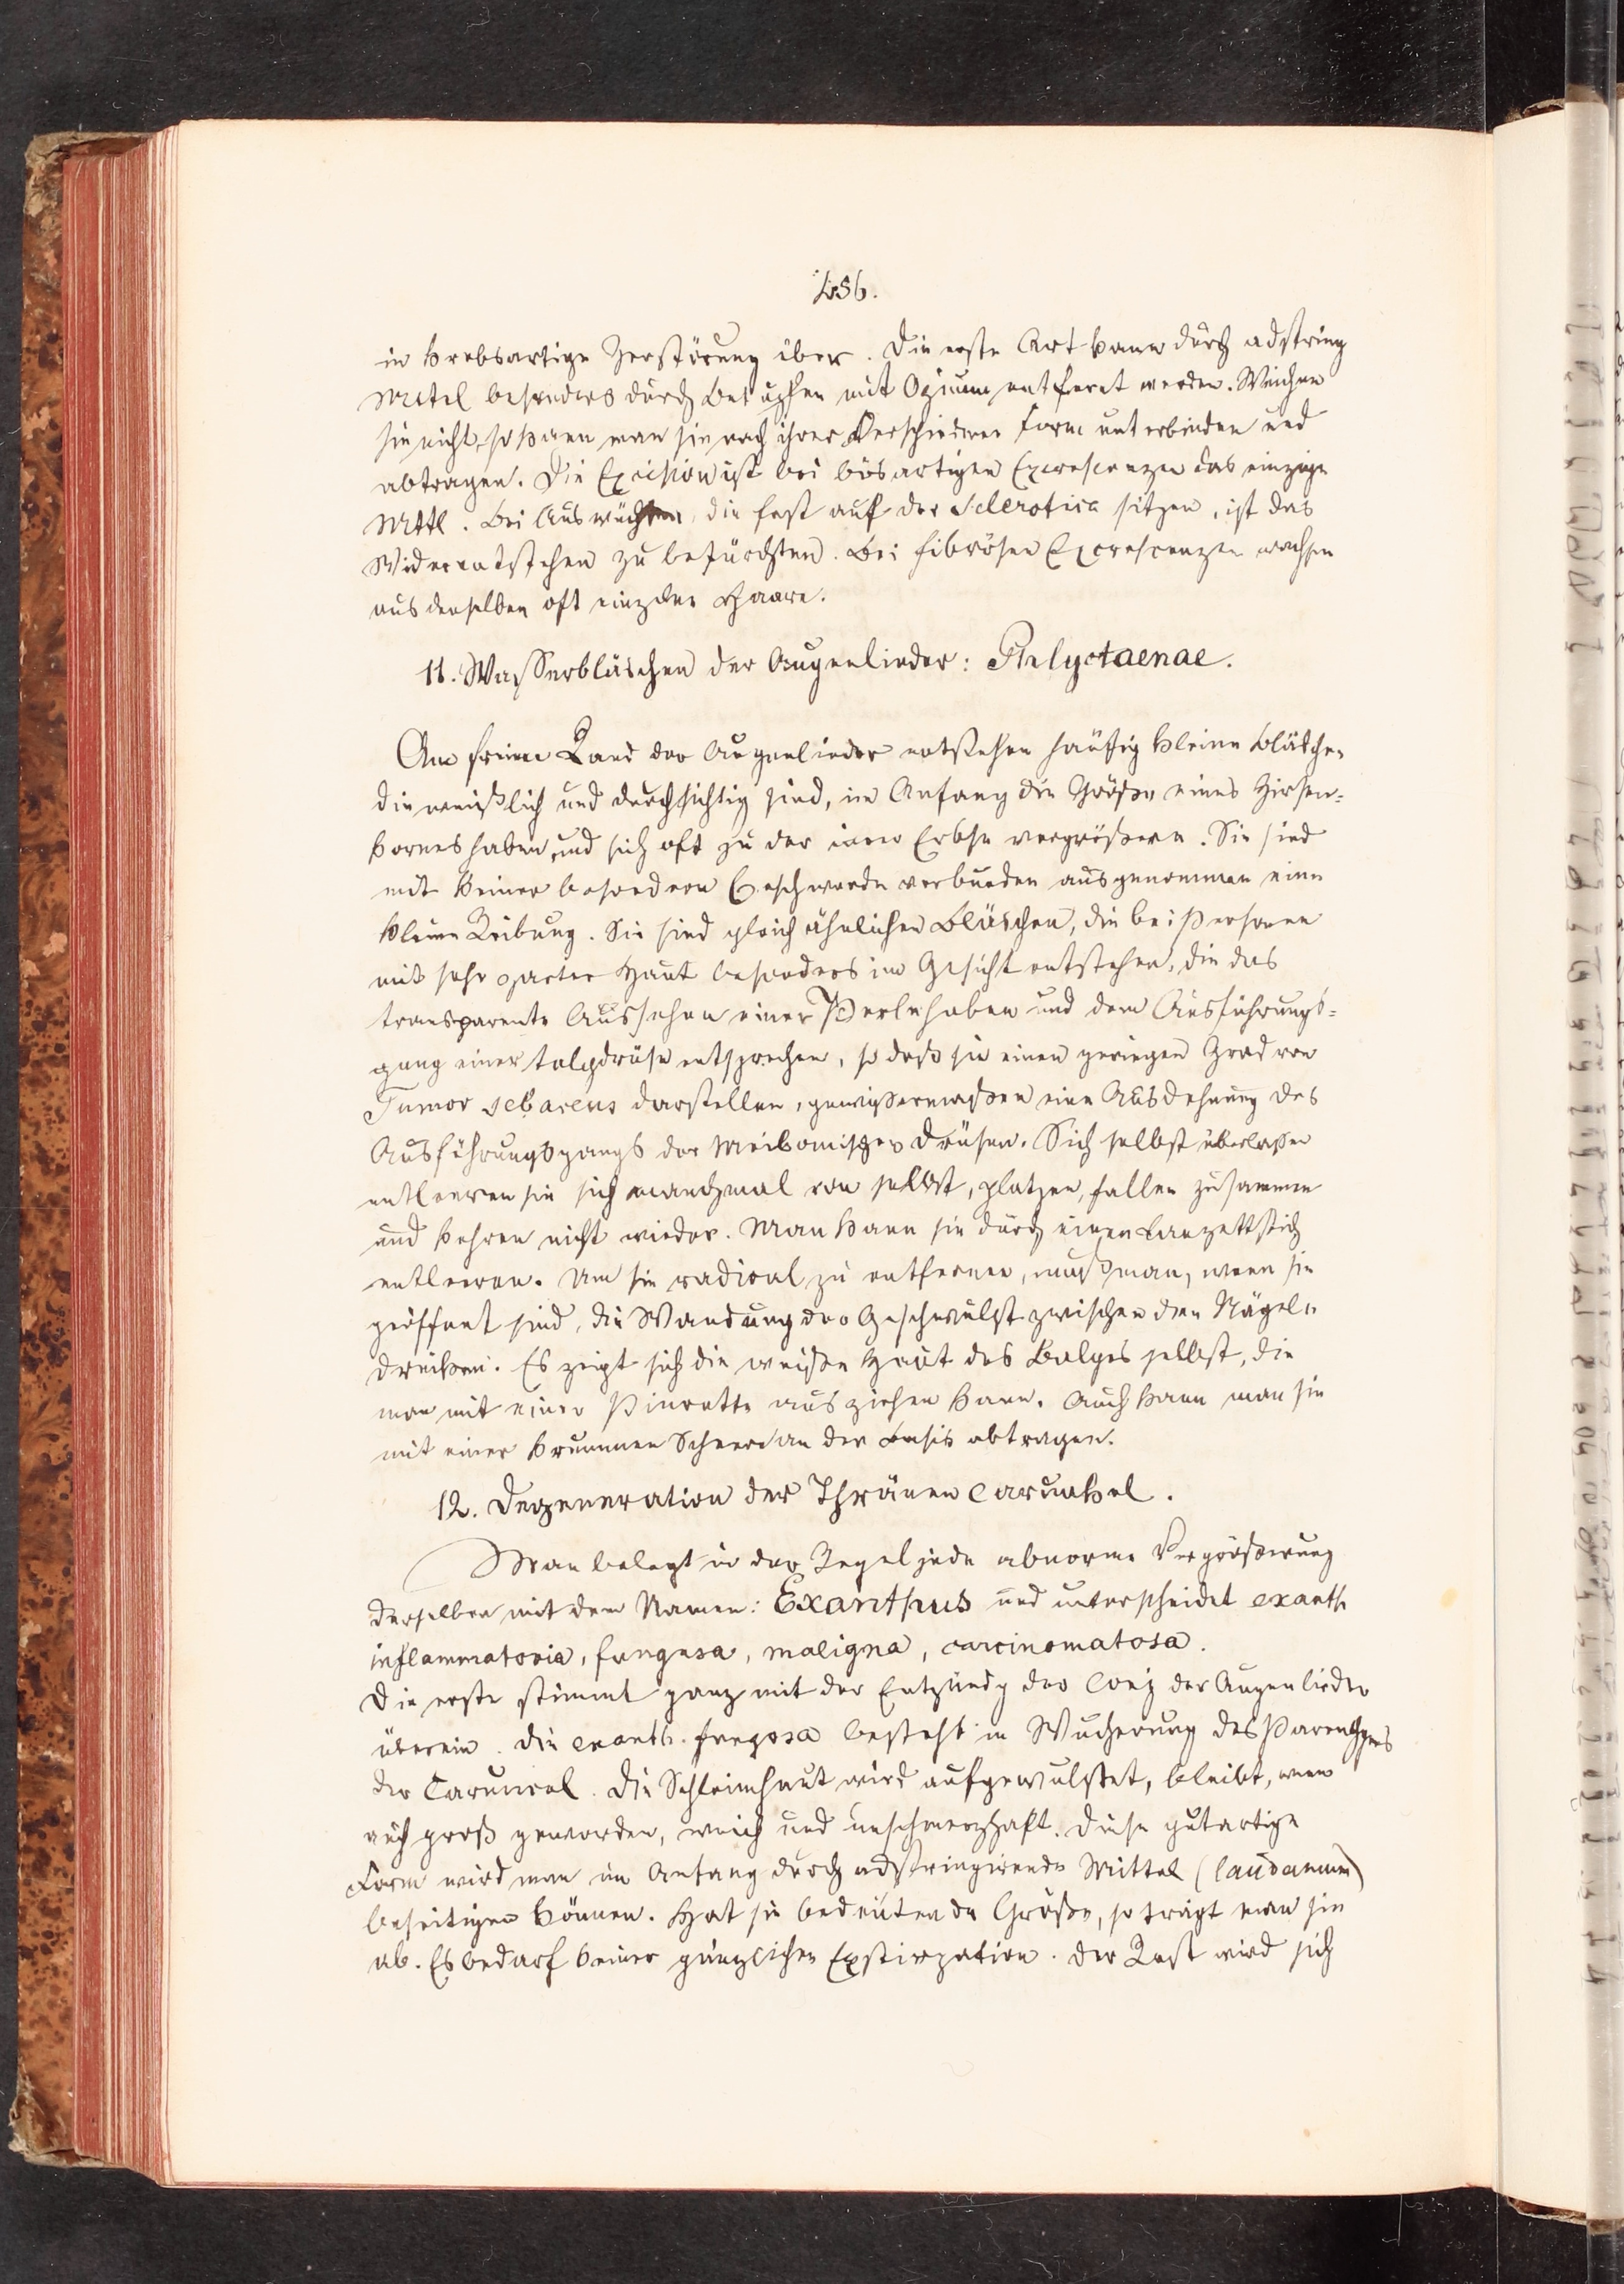 456.
in krebsartige Zerstörung über. Die erste Art kann durch adstring
Mittel besonders durch Betupfen mit Opium entfernt werden. Weichen
sie nicht, so kann man sie nach ihrer verschiedenen Form unterbinden und
abtragen. Die Excision ist bei bösartigen Excrescenzen das einzige
Mttl. Bei Auswüchsen, die fest auf der Sclerotica sitzen, ist das
Wiederentstehen zu befürchten. Bei fibrösen Excrescenzen wachsen
aus denselben oft einzelne Haare.
11. Wasserbläschen der Augenlieder: Phlyctaenae.
Am freien Rand der Augenlieder entstehen häufig kleine Bläschen
die weißlich und durchsichtig sind, im Anfang die Größe eines Hirsen-
kornes haben und sich oft zu der einer Erbse vergrößern. Sie sind
mit keiner besonderen Beschwerde verbunden ausgenommen eine
kleine Reibung. Sie sind gleich ähnlichen Bläschen, die bei Personen
mit sehr zarter Haut besonders im Gesicht entstehen, die das
transparente Aussehen einer Perle haben und dem Ausführungs-
gang einer talgdrüse entsprechen, so daß sie einen geringen Grad von
Tumor sebaceus darstellen, gewißermaßen eine Ausdehnung des
Ausführungsgangs der Meibomischen Drüsen. Sich selbst überlaßen
entleeren sie sich manchmal von selbst, platzen, fallen zusammen
und kehren nicht wieder. Man kann sie durch einen Lanzettstich
entleeren. Um sie radical zu entfernen, muß man, wenn sie
geöffnet sind, die Wandung der Geschwulst zwischen den Nägeln
drücken. Es zeigt sich die weiße Haut des Balges selbst, die
man mit einer Pincette ausziehen kann. Auch kann man sie
mit einer krummen Scheere an der Basis abtragen.
12. Degeneration der Thränencarunkel.
Man belegt in der Regel jede abnorme Vergrößerung
derselben mit dem Namen: Exanthus und unterscheidet exanth
inflammatoria, fungosa, maligna, carcinomatosa.
Die erste stimmt ganz mit der Entzündg der Conj der Augenlieder
überein. Die exanth. fungosa besteht in Wucherung des Parenchyms
der Caruncel. Die Schleimhaut wird aufgewulstet, bleibt, wenn
auch groß geworden, weich und unschmerzhaft. Diese gutartige
Form wird man im Anfang durch adstringirende Mittel (laudanum)
beseitigen können. Hat sie bedeutende Größe, so trägt man sie
ab. Es bedarf keiner gänzlichen Exstirpation. Der Rest wird sich